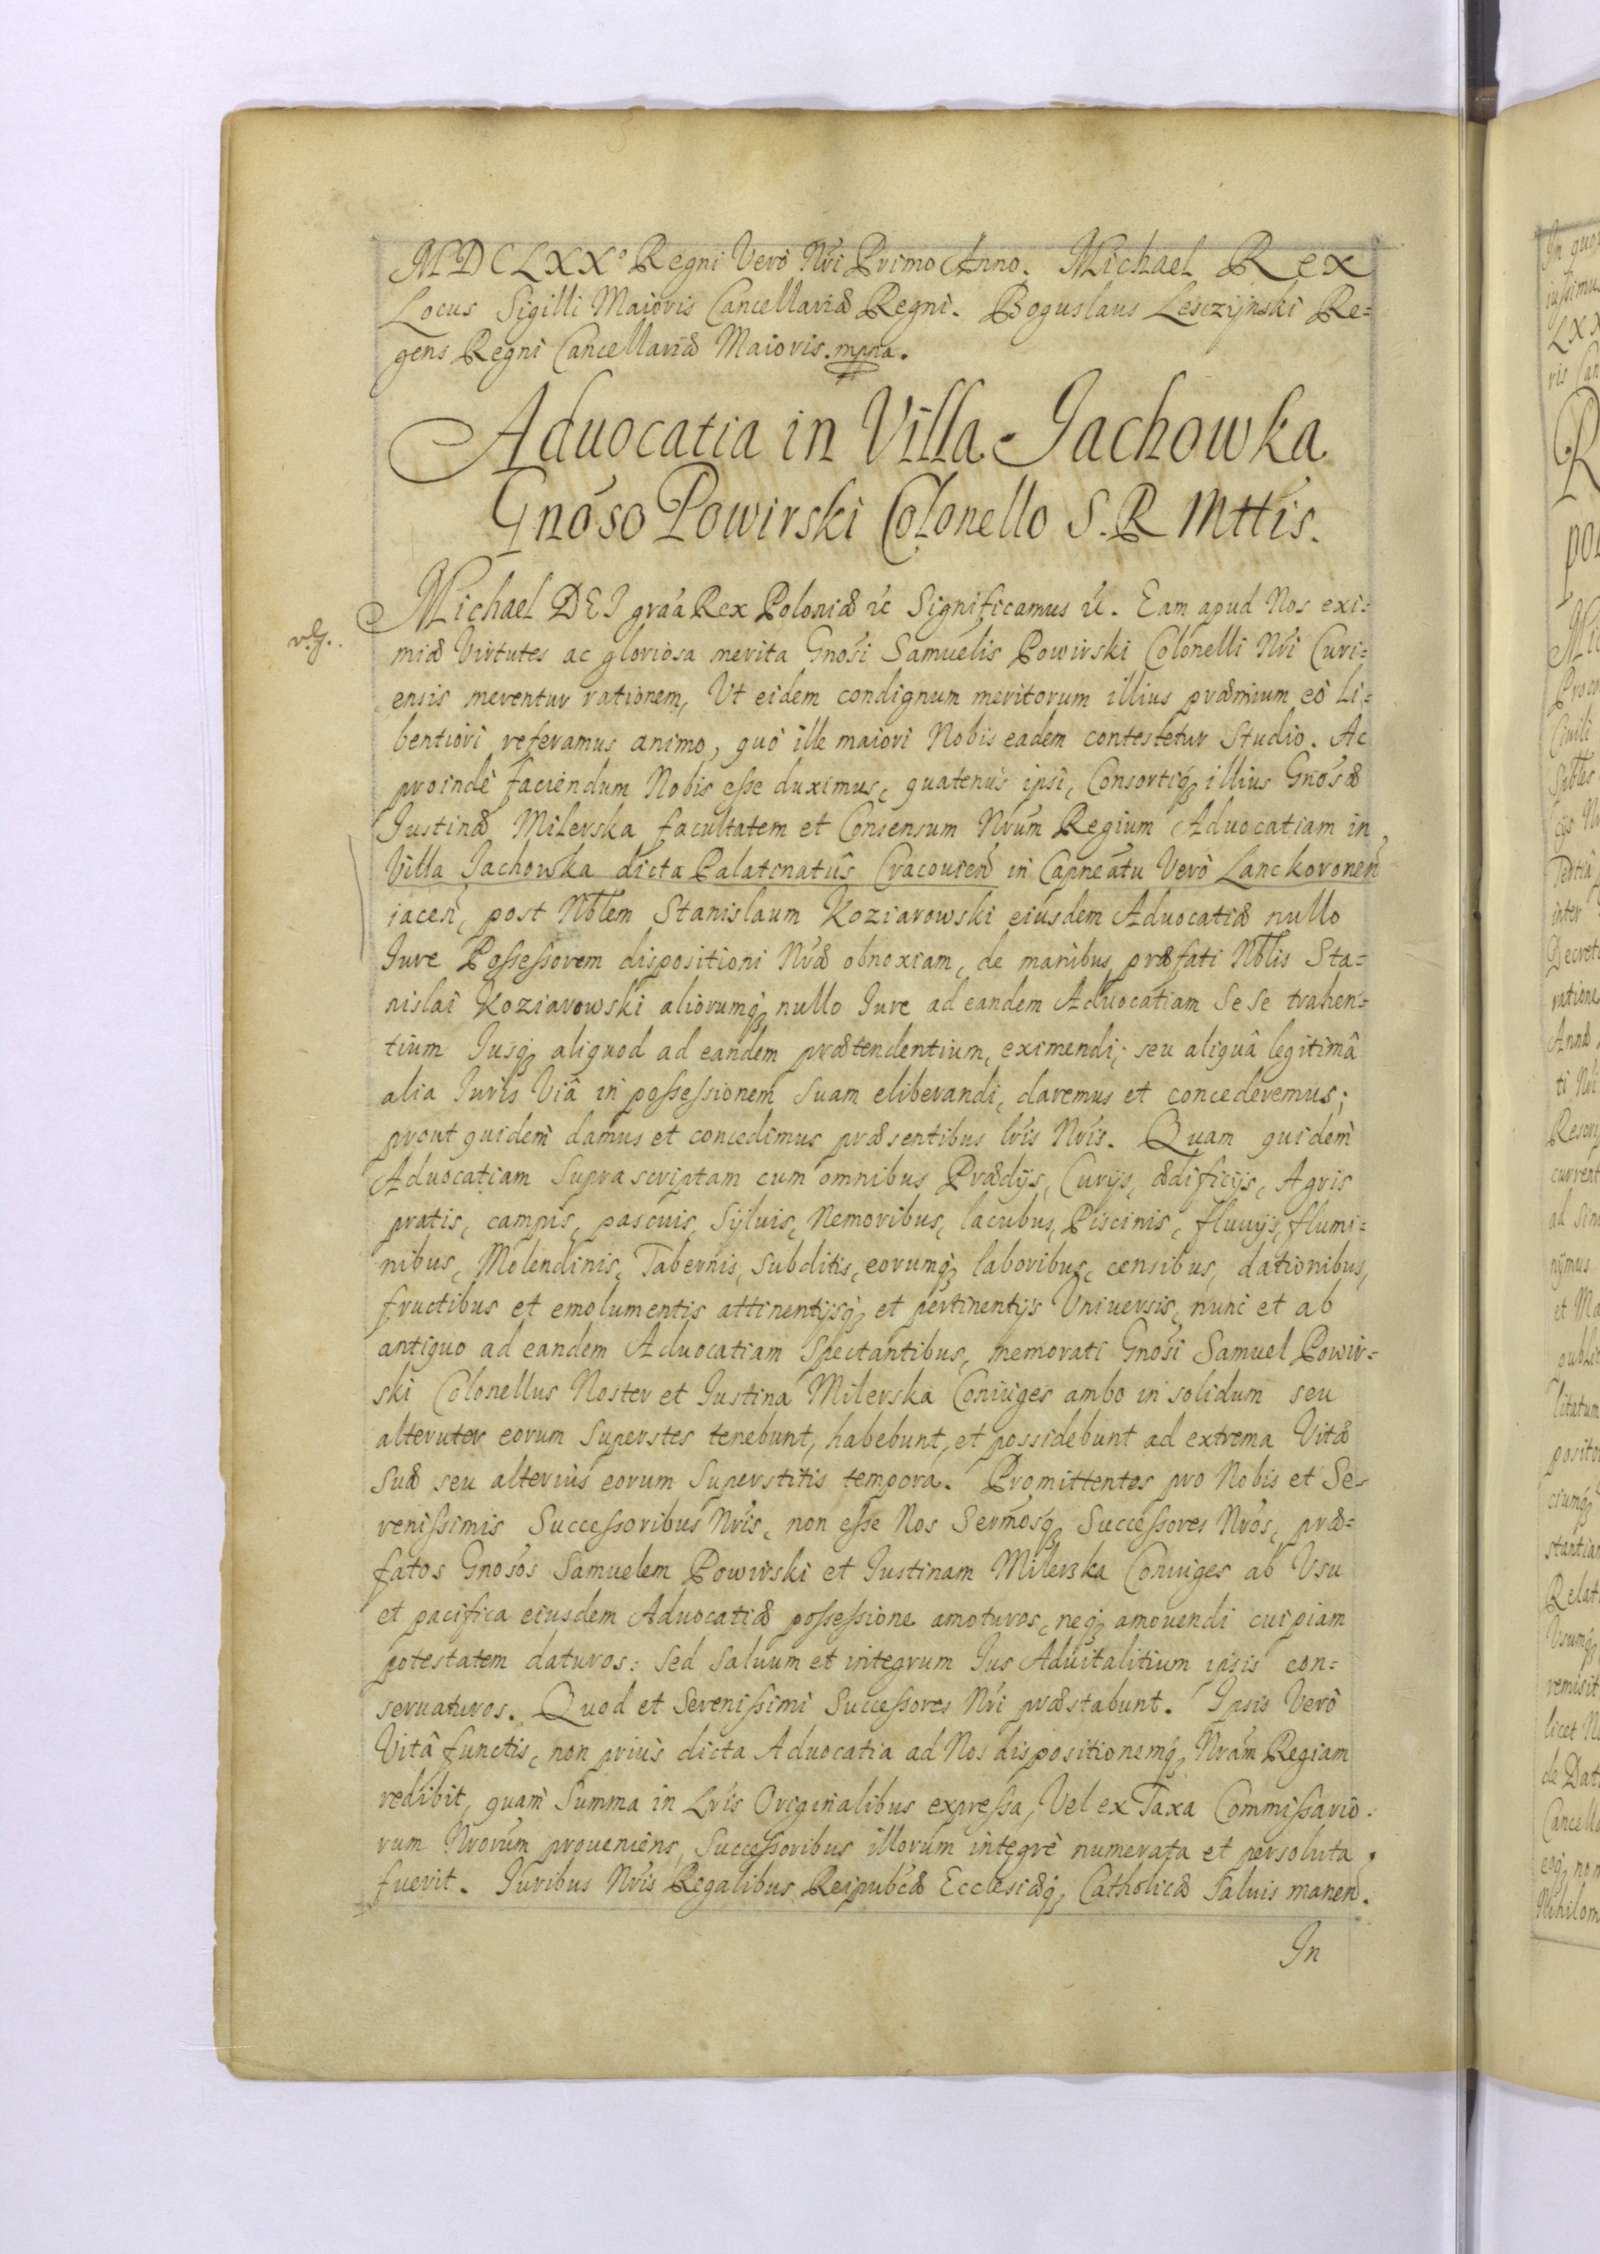 MDCLXXo Regni Verò Nri Primo Anno. Michael Rex
Locus Sigilli Maioris Cancellariæ Regni. Boguslaus Lesczijnski Re=
gens Regni Cancellariæ Maioris. mpria.
Aduocatia in Villa Jachowka
Gnoso Powirski Colonello S. R Mttis.
Michael DEI graa Rex Poloniæ &c Significamus &c. Eam apud Nos exi=
miæ Virtutes ac gloriosa merita Gnosi Samuelis Powirski Colonelli Nri Curi=
ensis merentur rationem, Ut eidem condignum meritorum illius præmium eò li=
bentiori referamus animo, quò ille maiori Nobis eadem contestetur Studio. Ac
proindè faciendum Nobis esse duximus, quatenus ipsi, Consortiq illius Gnosæ
Justinæ Milerska facultatem et Consensum Nrum Regium Aduocatiam in
Villa Jachowka dicta Palatinatûs Cracouien in Capneatu Verò Lanckoronen
iacen, post Nblem Stanislaum Koziarowski eiusdem Aduocatiæ nullo
Jure Possessorem dispositioni Nræ obnoxiam, de manibus præfati Nblis Sta=
nislai Koziarowski aliorumq nullo Jure ad eandem Aduocatiam Se se trahen=
tium Jusq aliquod ad eandem prætendentium, eximendi, seu aliquâ legitimâ
alia Juris Viâ in possessionem suam eliberandi, daremus et concederemus;
prout quidem damus et concedimus præsentibus lris Nris. Quam quidem
Aduocatiam Suprascriptam cum omnibus Prædijs, Curijs, ædificijs, Agris
pratis, campis, pascuis, Syluis, Nemoribus, lacubus, Piscinis, fluuijs, flumi=
nibus, Molendinis, Tabernis, subditis, eorumq laboribus, censibus, dationibus,
fructibus et emolumentis attinentijsq et pertinentijs Uniuersis, nunc et ab
antiquo ad eandem Aduocatiam Spectantibus, memorati Gnosi Samuel Powir=
ski Colonellus Noster et Justina Milerska Coniuges ambo in solidum seu
alteruter eorum Superstes tenebunt, habebunt, et possidebunt ad extrema Vitæ
suæ seu alterius eorum Superstitis tempora. Promittentes pro Nobis et Se=
renissimis Successoribus Nris, non esse Nos Sermosq Successores Nros, præ=
fatos Gnosos Samuelem Powirski et Justinam Milerska Coniuges ab Usu
et pacifica eiusdem Aduocatiæ possessione amoturos, neq amouendi cuipiam
potestatem daturos: sed saluum et integrum Jus Aduitalitium ipsis con=
seruaturos. Quod et Serenissimi Successores Nri præstabunt. Ipsis Verò
Vitâ functis, non prius dicta Aduocatia ad Nos dispositionemq Nram Regiam
redibit, quam Summa in Lris Originalibus expressa, Vel ex Taxa Commissario=
rum Nrorum proueniens, Successoribus illorum integrè numerata et persoluta
fuerit. Juribus Nris Regalibus Reipubcæ Ecclesiæq Catholicæ saluis manen.
In